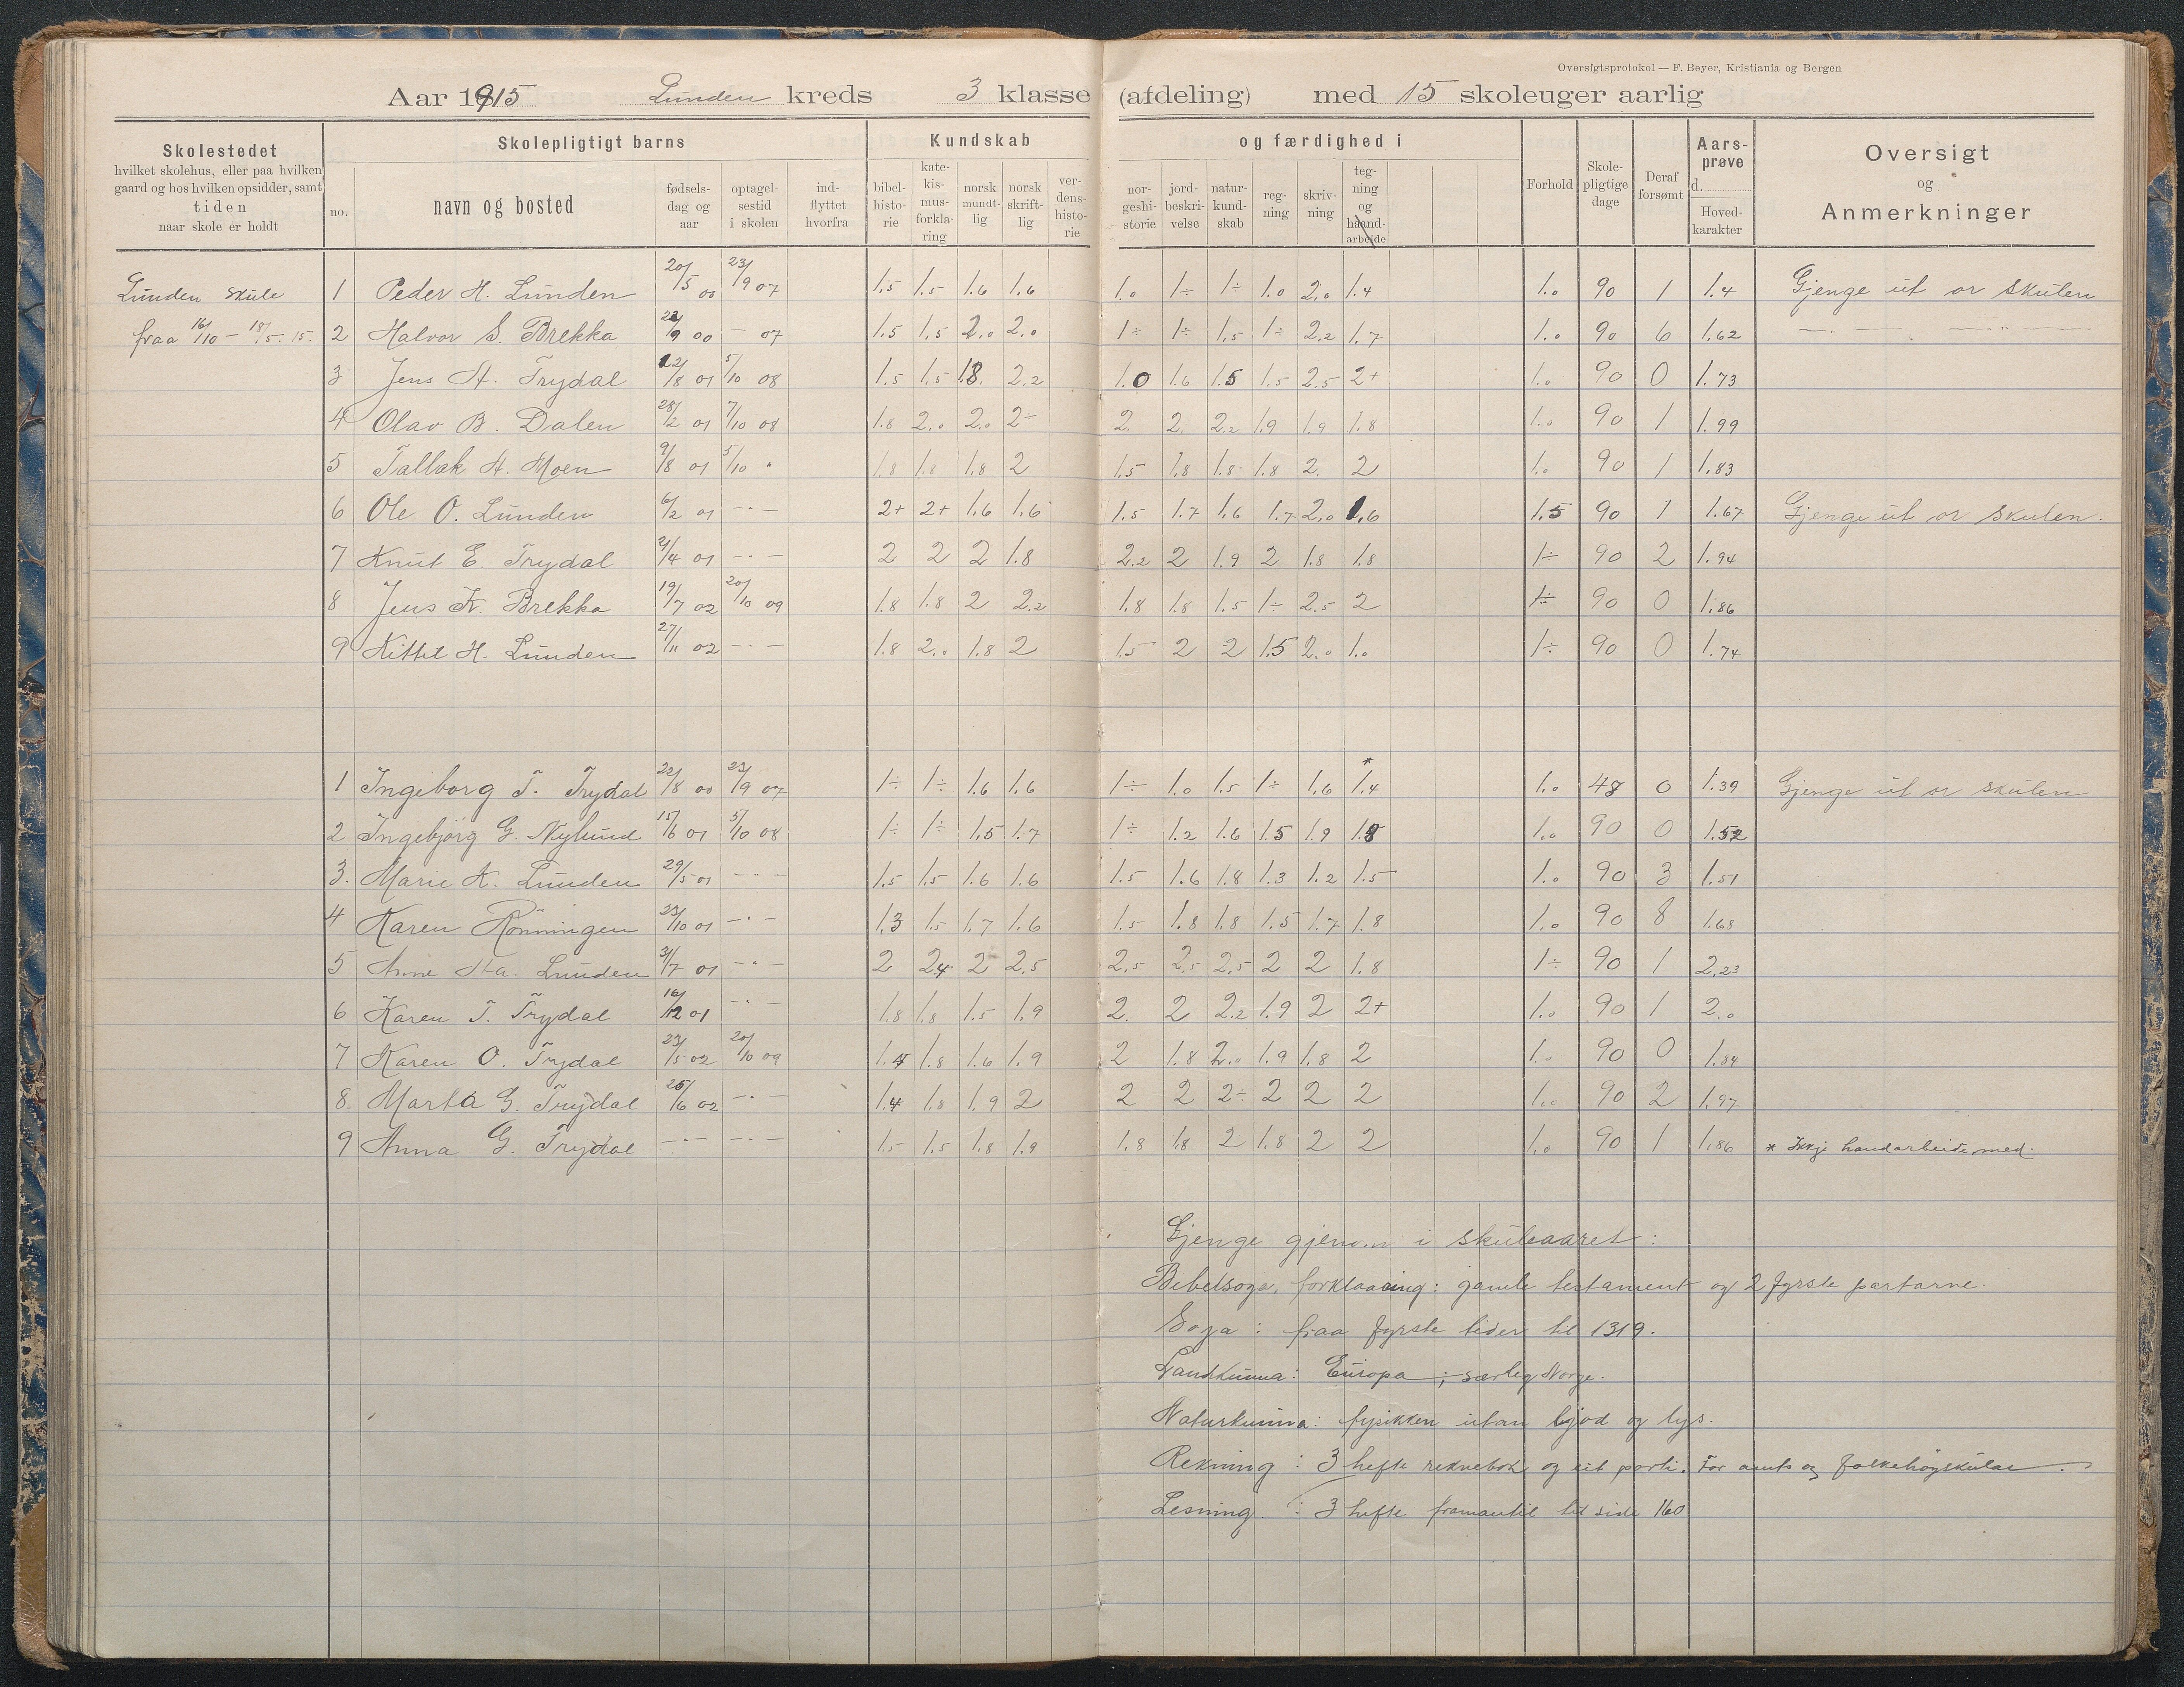 Oversigtsprotokol — F. Beyer, Kristiania og Bergen
Aar 1915 Lunden kreds 3 klasse (afdeling) med 15 skoleuger aarlig
Skolestedet
hvilket skolehus, eller paa hvilken
gaard og hos hvilken opsidder, samt
tiden
naar skole er holdt
Skolepligtigt barns
no.
navn og bosted
fødsels-
dag og
aar
optagel-
sestid
i skolen
ind-
flyttet
hvorfra
Kundskab
bibel-
histo-
rie
kate-
kis-
mus-
forkla-
ring
norsk
mundt-
lig
norsk
skrift-
lig
ver-
dens-
histo-
rie
og færdighed i
nor-
geshi-
storie
jord-
beskri-
velse
natur-
kund-
skab
reg-
ning
skriv-
ning
teg-
ning
og
haand-
arbeide
Forhold
Skole-
pligtige
dage
Deraf
forsømt
Aars-
prøve
d.
Hoved-
karakter
Oversigt
og
Anmerkninger
Lunden skule
fraa 16/10 – 18/5. 15.
1 Peder H. Lunden 20/5 00 23/9 07 1.5 1.5 1.6 1.6 1.0 1÷ 1÷ 1.0 2.0 1.4 1.0 90 1 1.4 Gjenge ut or skulen
2 Halvor S. Brekka 22/9 00 – 07 1.5 1.5 2.0 2.0 1÷ 1÷ 1.5 1÷ 2.2 1.7 1.0 90 6 1.62 —.— —..—
3 Jens H. Trydal 12/8 01 5/10 08 1.5 1.5 1.8. 2.2 1.0 1.6 1.5 1.5 2.5 2+ 1.0 90 0 1.73
4 Olav B. Dalen 28/2 01 7/10 08 1.8 2.0 2.0 2÷ 2. 2. 2.2 1.9 1.9 1.8 1.0 90 1 1.99
5 Tallak H. Moen 9/8 01 5/10 " 1.8 1.8 1.8 2 1.5 1.8 1.8 1.8 2. 2 1.0 90 1 1.83
6 Ole O. Lunden 6/2 01 –·– 2+ 2+ 1.6 1.6 1.5 1.7 1.6 1.7 2.0 1.6 1.5 90 1 1.67 Gjenge ut or skulen.
7 Knut E. Trydal 2/4 01 –·– 2 2 2 1.8 2.2 2 1.9 2 1.8 1.8 1÷ 90 2 1.94
8 Jens K. Brekka 19/7 02 20/10 09 1.8 1.8 2 2.2 1.8 1.8 1.5 1÷ 2.5 2 1÷ 90 0 1.86
9 Kittil H. Lunden 27/11 02 –·– 1.8 2.0 1.8 2 1.5 2 2 1.5 2.0 1.0 1÷ 90 0 1.74
1 Ingeborg T. Trydal 22/8 00 23/9 07 1÷ 1÷ 1.6 1.6 1÷ 1.0 1.5 1÷ 1.6 *1.4 1.0 48 0 1.39 Gjenge ut or skulen
2 Ingebjörg G. Nylund 15/6 01 5/10 08 1÷ 1÷ 1.5 1.7 1÷ 1.2 1.6 1.5 1.9 1.8 1.0 90 0 1.52
3. Marie K. Lunden 29/5 01 –·– 1.5 1.5 1.6 1.6 1.5 1.6 1.8 1.3 1.2 1.5 1.0 90 3 1.51
4 Karen Rönningen 23/10 01 –·– 1.3 1.5 1.7 1.6 1.5 1.8 1.8 1.5 1.7 1.8 1.0 90 8 1.68
5 Anne Ha. Lunden 31/7 01 –·– 2 2.4 2 2.5 2.5 2.5 2.5 2 2 1.8 1÷ 90 1 2.23
6 Karen T. Trydal 16/12 01 –·– 1.8 1.8 1.5 1.9 2. 2 2.2 1.9 2 2+ 1.0 90 1 2.0
7 Karen O. Trydal 23/5 02 20/10 09 1.4 1.8 1.6 1.9 2 1.8 2.0 1.9 1.8 2 1.0 90 0 1.84
8. Marta G. Trydal 25/6 02 –·– 1.4 1.8 1.9 2 2 2 2÷ 2 2 2 1.0 90 2 1.97
9 Anna G. Trydal –·– –·– 1.5 1.5 1.8 1.9 1.8 1.8 2 1.8 2 2 1.0 90 1 1.86 * Ikkje handarbeide med.
Gjenge gjenom i skuleaaret:
Bibelsoga, forklaaring: gamle testament og 2 fyrste partarne.
Soga: fraa fyrste tider til 1319.
Landkunna: Europa; særleg Norge.
Naturkunna: fysikken utan ljod og lys.
Rekning: 3 hefte reknebok og eit parti. For amts og folkehögskular.
Lesning: 3 hefte framantil til side 160